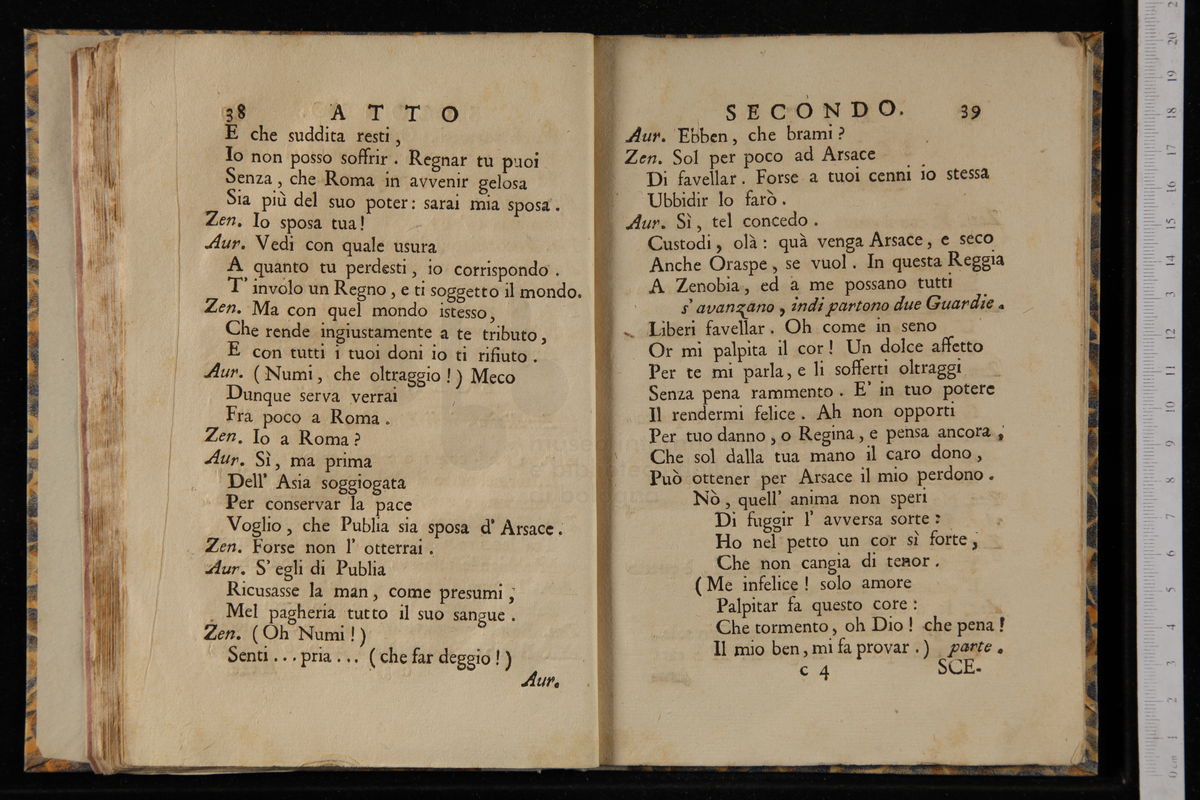 38 ATTO
E che suddita resti,
Io non posso soffrir. Regnar tu puoi
Senza, che Roma in avvenir gelosa
Sia più del suo poter: sarai mia sposa.
Zen. Io sposa tua!
Aur. Vedi con quale usura
A quanto tu perdesti, io corrispondo.
T' involo un Regno, e ti soggetto il mondo.
Zen. Ma con quel mondo istesso,
Che rende ingiustamente a te tributo,
E con tutti i tuoi doni io ti rifiuto.
Aur. (Numi, che oltraggio!) Meco
Dunque serva verrai
Fra poco a Roma.
Zen. Io a Roma?
Aur. Sì, ma prima
Dell' Asia soggiogata
Per conservar la pace
Voglio, che Publia sia sposa d' Arsace.
Zen. Forse non l' otterrai.
Aur. S' egli di Publia
Ricusasse la man, come presumi,
Mel pagheria tutto il suo sangue.
Zen. (Oh Numi!)
Senti... pria... (che far deggio!)
Aur.
SECONDO. 39
Aur. Ebben, che brami?
Zen. Sol per poco ad Arsace
Di favellar. Forse a tuoi cenni io stessa
Ubbidir lo farò.
Aur. Sì, tel concedo.
Custodi, olà: quà venga Arsace, e seco
Anche Oraspe, se vuol. In questa Reggia
A Zenobia, ed a me possano tutti
s' avanzano, indi partono due Guardie.
Liberi favellar. Oh come in seno
Or mi palpita il cor! Un dolce affetto
Per te mi parla, e li sofferti oltraggi
Senza pena rammento. E' in tuo potere
Il rendermi felice. Ah non opporti
Per tuo danno, o Regina, e pensa ancora,
Che sol dalla tua mano il caro dono,
Può ottener per Arsace il mio perdono.
Nò, quell' anima non speri
Di fuggir l' avversa sorte:
Ho nel petto un cor sì forte,
Che non cangia di tenor.
(Me infelice! solo amore
Palpitar fa questo core:
Che tormento, oh Dio! che pena!
Il mio ben, mi fa provar.) parte.
c 4 SCE-